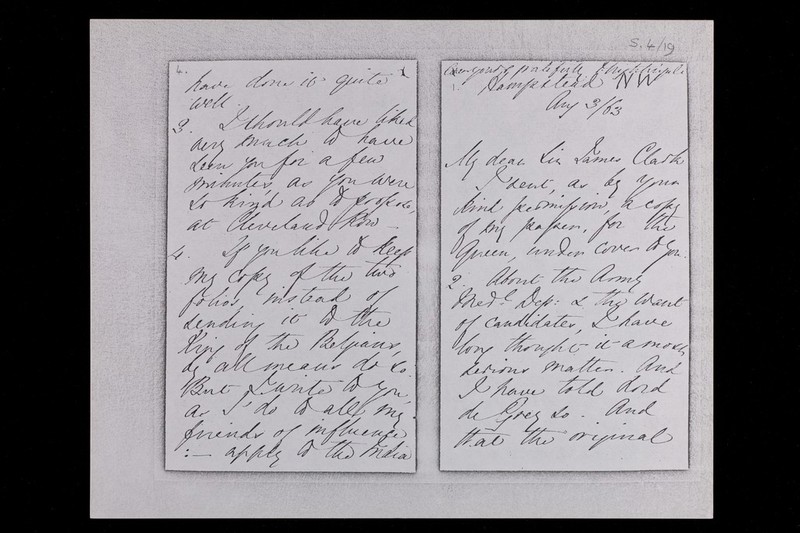 S. 4/19
4.
have done it quite
well.
3. I should have liked
very much to have
seen you for a few
minutes, as you were
so kind as to propose,
at Cleveland Row -
4. If you like to keep
my copy of the two
folios, instead of
sending it to the
King of the Belgians,
by all means do so.
But I write to you,
as I do to all my
friends of influence
:— apply to the India
1.
Hampstead NW
Aug 3/63
My dear Sir James Clark
I sent, as by your
kind permission, a copy
of my paper, for the
Queen, under cover to you.
2. About the Army
Medl Dep: & the want
of candidates, I have
long thought it a most
serious matter. And
I have told Lord
de Grey so. And
that the original